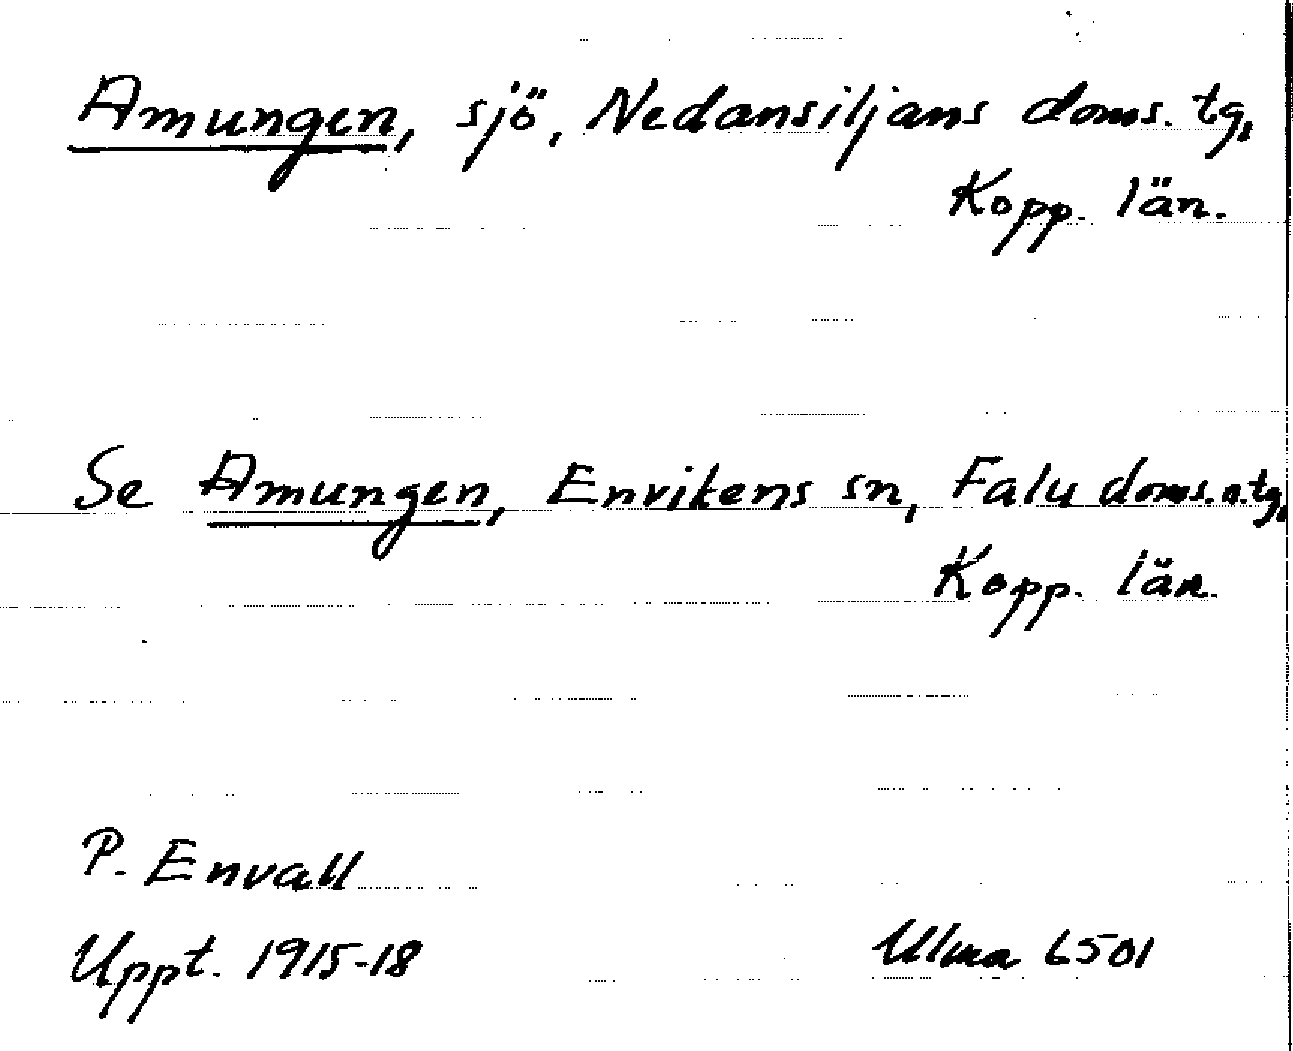 Amungen, sjö, Nedansiljans doms. tg,
Kopp. län.
Se Amungen, Envikens sn, Falu doms.n.tg,
Kopp. län.
P. Envall
Uppt. 1915-18
Ulma 6501